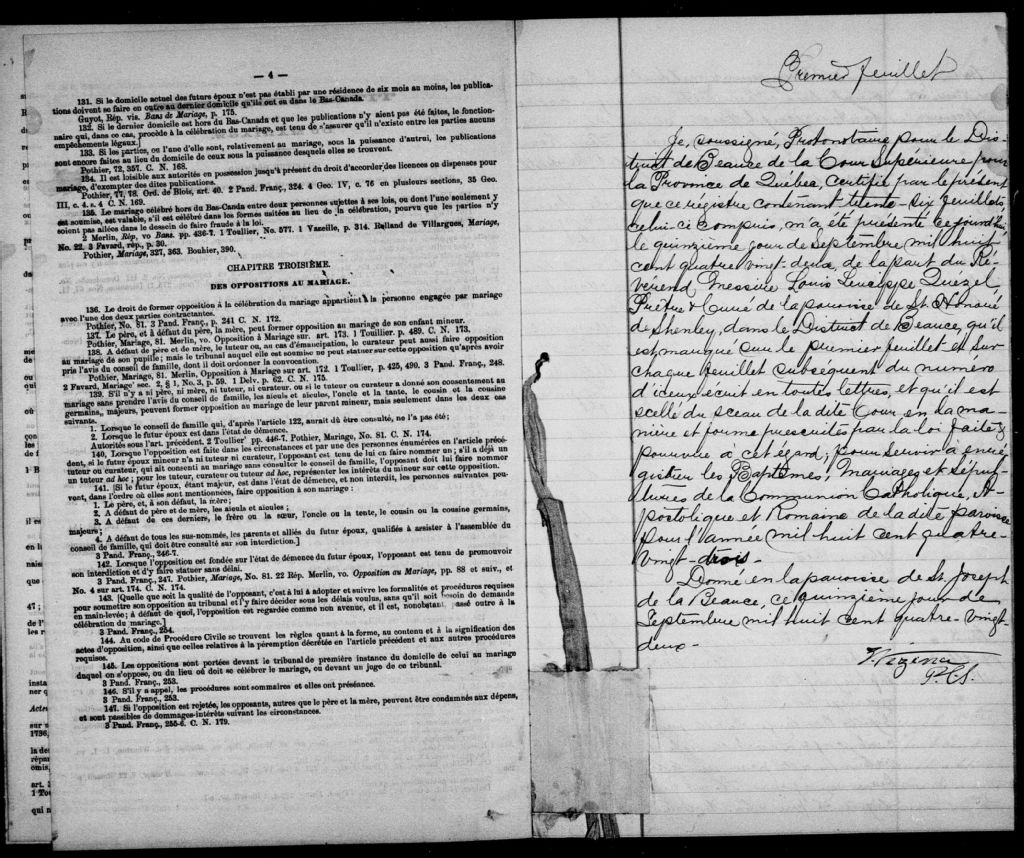 — 4 —
131. Si le domicile actuel des future époux n'est pas établi par une résidence de six mois au moins, les publica-
tions doivent se faire en outre au dernier domicile qu'ils ont eu dans le Bas-Canada.
Guyot, Rép. vis. Bans de Mariage, p. 175.
132. Si le dernier domicile est hors du Bas-Canada et que les publications n'y aient pas été faites, le fonction-
naire qui, dans ce cas, procède à la célébration du mariage, est tenu de s'assurer qu'il n'existe entre les parties aucuns
empêchements légaux.]
133. Si les parties, ou l'une d'elle sont, relativement au mariage, sous la puissance d'autrui, les publications
sont encore faites au lieu du domicile de ceux sous la puissance desquels elles se trouvent.
Pothier, 72, 357. C. N. 168.
134. Il est loisible aux autorités en possession jusqu'à présent du droit d'accorder des licences ou dispenses pour
mariage, d'exempter des dites publications.
Pothier, 77, 78. Ord. de Blois, art. 40. 2 Pand. Franç., 324. 4 Geo. IV, c. 76 en plusieurs sections, 35 Geo.
III, c. 4. s. 4 C. N. 169.
135. Le mariage célébré hors du Bas-Canada entre deux personnes sujettes à ses lois, ou dont l'une seulement y
est soumise, est valable, s'il est célébré dans les formes usitées au lieu de la célébration, pourvu que les parties n'y
soient pas allées dans le dessein de faire fraude à la loi.
2 Merlin, Rép, vo Bans. pp. 436-7. 1 Toullier, No. 577. 1 Vazeille, p. 314. Rolland de Villargues, Mariage,
No. 22. 3 Favard, rép., p. 30.
Pothier, Mariage, 327, 363. Bouhier, 390.
CHAPITRE TROISIÈME.
DES OPPOSITIONS AU MARIAGE.
136. Le droit de former opposition à la célébration du mariage appartient à la personne engagée par mariage
avec l'une des deux parties contractantes.
Pothier, No. 81. 3 Pand. Franç., p. 241 C. N. 172.
137. Le père, et à défaut du père, la mère, peut former opposition au mariage de son enfant mineur.
Pothier, Mariage, 81. Merlin, vo. Opposition à Mariage sur art. 173. 1 Touillier. p. 489. C. N. 173.
138. A défaut de père et de mère, le tuteur ou, au cas d'émancipation, le curateur peut aussi faire opposition
au mariage de son pupille; mais le tribunal auquel elle est soumise ne peut statuer sur cette opposition qu'après avoir
pris l'avis du conseil de famille, dont il doit ordonner la convocation.
Pothier, Mariage, 81. Merlin, Opposition à Mariage sur art. 172. 1 Toullier, p. 425, 490. 3 Pand. Franç., 248.
2 Favard, Mariage' sec. 2, § 1, No. 3, p. 59. 1 Delv. p. 62. C. N. 175.
139. S'il n'y a ni père, ni mère, ni tuteur, ni curateur, ou si le tuteur ou curateur a donné son consentement au
mariage sans prendre l'avis du conseil de famille, les aïeuls et aïeules, l'oncle et la tante, le cousin et la cousine
germains, majeurs, peuvent former opposition au mariage de leur parent mineur, mais seulement dans les deux cas
suivants.
1. Lorsque le conseil de famille qui, d'après l'article 122, aurait dû être consulté, ne l'a pas été;
2. Lorsque le futur époux est dans l'état de démence.
Autorités sous l'art. précédent. 2 Toullier' pp. 446-7. Pothier, Mariage, No. 81. C. N. 174.
140. Lorsque l'opposition est faite dans les circonstances et par une des personnes énumérées en l'article précé-
dent, si le futur époux mineur n'a ni tuteur ni curateur, l'opposant est tenu de lui en faire nommer un; s'il a déjà un
tuteur ou curateur, qui ait consenti au mariage sans consulter le conseil de famille, l'opposant doit lui faire nommer
un tuteur ad hoc; pour les tuteur, curateur ou tuteur ad hoc, représenter les intérêts du mineur sur cette opposition.
141. [Si le futur époux, étant majeur, est dans l'état de démence, et non interdit, les personnes suivantes peu
vent, dans l'ordre où elles sont mentionnées, faire opposition à son mariage:
1. Le père, et, à son défaut, la mère;
2. A défaut de père et de mère, les aïeuls et aïeules;
3. A défaut de ces derniers, le frère ou la sœur, l'oncle ou la tente, le cousin ou la cousine germains,
majeurs;
4. A défaut de tous les sus-nommés, les parents et alliés du futur époux, qualifiés à assister à l'assemblée du
conseil de famille, qui doit être consulté sur son interdiction.]
3 Pand. Franç., 246-7.
142. Lorsque l'opposition est fondée sur l'état de démence du futur époux, l'opposant est tenu de promouvoir
son interdiction et d'y faire statuer sans délai.
3 Pand. Franç., 247. Pothier, Mariage, No. 81. 22 Rép. Merlin, vo. Opposition au Mariage, pp. 88 et suiv., et
No. 4 sur art. 174. C. N. 174.
143. [Quelque soit la qualité de l'opposant, c'est à lui à adopter et suivre les formalités et procédures requises
pour soumettre son opposition au tribunal et l'y faire décider sous les délais voulus, sans qu'il soit besoin de demande
en main-levée; à défaut de quoi, l'opposition est regardée comme non avenue, et il est, nonobstant, passé outre à la
célébration du mariage.]
3 Pand. Franç., 254.
144. Au code de Procédure Civile se trouvent les règles quant à la forme, au contenu et à la signification des
actes d'opposition, ainsi que celles relatives à la péremption décrétée en l'article précédent et aux autres procédures
requises.
145. Les oppositions sont portées devant le tribunal de première instance du domicile de celui au mariage
duquel on s'oppose, ou du lieu où doit se célébrer le mariage, ou devant un juge de ce tribunal.
3 Pand. Franç., 253.
146. S'il y a appel, les procédures sont sommaires et elles ont préséance.
3 Pand. Franç., 253.
147. Si l'opposition est rejetée, les opposants, autres que le père et la mère, peuvent être condamnés aux dépens,
et sont passibles de dommages-intérêts suivant les circonstances.
3 Pand. Franç., 255-6. C. N. 179.
Premier feuillet
Je, soussigné, Protonotaire pour le Dis-
trict de Beauce de la Cour Supérieure pour
la Province de Québec, certifie par le présent
que ce régistre contenant trente-six feuillets,
celui-ci compris, m'a été présenté ce jourd'hui,
le quinzième jour de septembre mil huit
cent quatre vingt-deux, de la part du Ré-
vérend Messire Louis Leucippe Quézel,
Prêtre & Curé de la paroisse de St. Honoré
de Shenley, dans le District de Beauce, qu'il
est marqué sur le premier feuillet et sur
chaque feuillet subséquent du numéro
d'iceux écrit en toutes lettres, et qu'il est
scellé du sceau de la dite Cour en la ma-
nière et forme prescrites par la loi faite &
pourvue à cet égard, pour servir à enré-
gistrer les Baptêmes, Mariages et Sépul-
tures de la Communion Catholique, A-
postolique et Romaine de la dite paroisse
pour l'année mil huit cent quatre-
vingt-trois.
Donné en la paroisse de St. Joseph
de la Beauce, ce quinzième jour de
Septembre mil huit cent quatre-vingt-
deux.
Vézina
P.C.S.